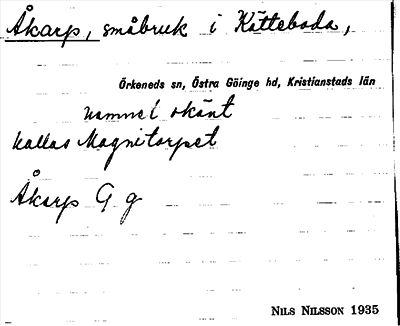 Åkarp, småbruk i Kätteboda,
Örkeneds sn, Östra Göinge hd, Kristianstads län
namnet okänt
kallas Magnitorpet
Åkarp G g
NILS NILSSON 1935